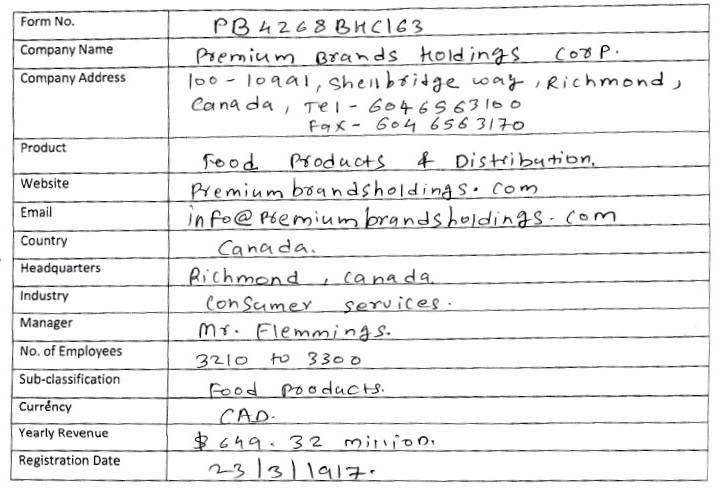 Form No. PB4268BHC163
Company Name Premium Brands Holdings Corp.
Company Address 100-10991, Shellbridge way, Richmond,
Canada, Tel - 6046563100
Fax - 604 6563170
Product Food Products & Distribution.
Website Premiumbrandsholdings.com
Email info@Premiumbrandsholdings.com
Country Canada.
Headquarters Richmond, Canada.
Industry Consumer services.
Manager Mr. Flemmings.
No. of Employees 3210 to 3300
Sub-classification Food Products.
Currency CAD.
Yearly Revenue $ 649.32 million.
Registration Date 23/3/1917.